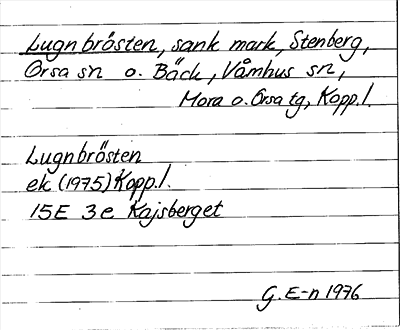 Lugnbrösten, sank mark, Stenberg,
Orsa sn o. Bäck, Våmhus sn,
Mora o. Orsa tg, Kopp. l.
Lugnbrösten
ek (1975) Kopp. l.
15E 3e Kajsberget
G. E-n 1976